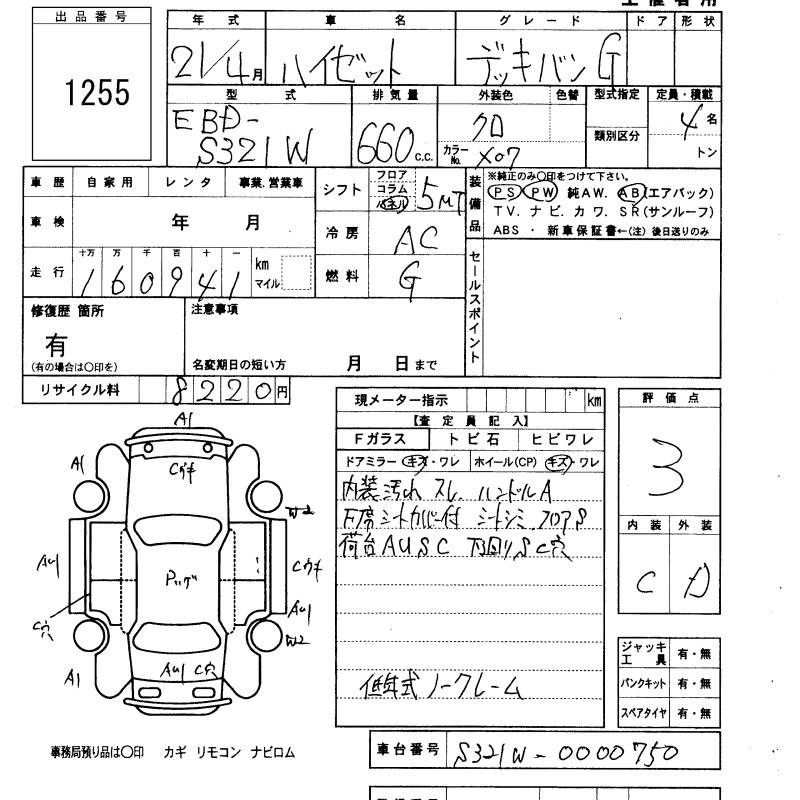 出品番号
1255
年式 車名 グレード ドア 形状
21/4月 ハイゼット デッキバン G
型式 排気量 外装色 色替 型式指定 定員・積載
EBD-
S321W 660c.c. クロ 類別区分 4名
カラーNo. X07 トン
車歴 自家用 レンタ 事業.営業車
車検 年 月
走行 十万 万 千 百 十 一
160941 km
マイル
シフト フロア コラム パネル 5MT
冷房 AC
燃料 G
装備品
※純正のみ〇印をつけて下さい。
PS PW 純AW. AB(エアバック)
TV. ナビ. カワ. SR(サンルーフ)
ABS ・ 新車保証書←(注) 後日送りのみ
セールスポイント
修復歴 箇所 注意事項
有
(有の場合は〇印を) 名変期日の短い方 月 日まで
リサイクル料 8220円
現メーター指示 km
【査定員記入】
Fガラス トビ石 ヒビワレ
ドアミラー キズ・ワレ ホイール(CP) キズ・ワレ
内装汚れ スレ ハンドルA
F席シートカバー付 シートシミ フロアS
荷台AUSC 下回りS C穴
低年式ノークレーム
評価点
3
内装 外装
C D
ジャッキ
工具 有・無
パンクキット 有・無
スペアタイヤ 有・無
A1
A1
Cウキ
W2
AU1
Pッゲ
Cウキ
C穴
AU1
W2
AU1 C穴
A1
事務局預り品は〇印 カギ リモコン ナビロム
車台番号 S321W-0000750